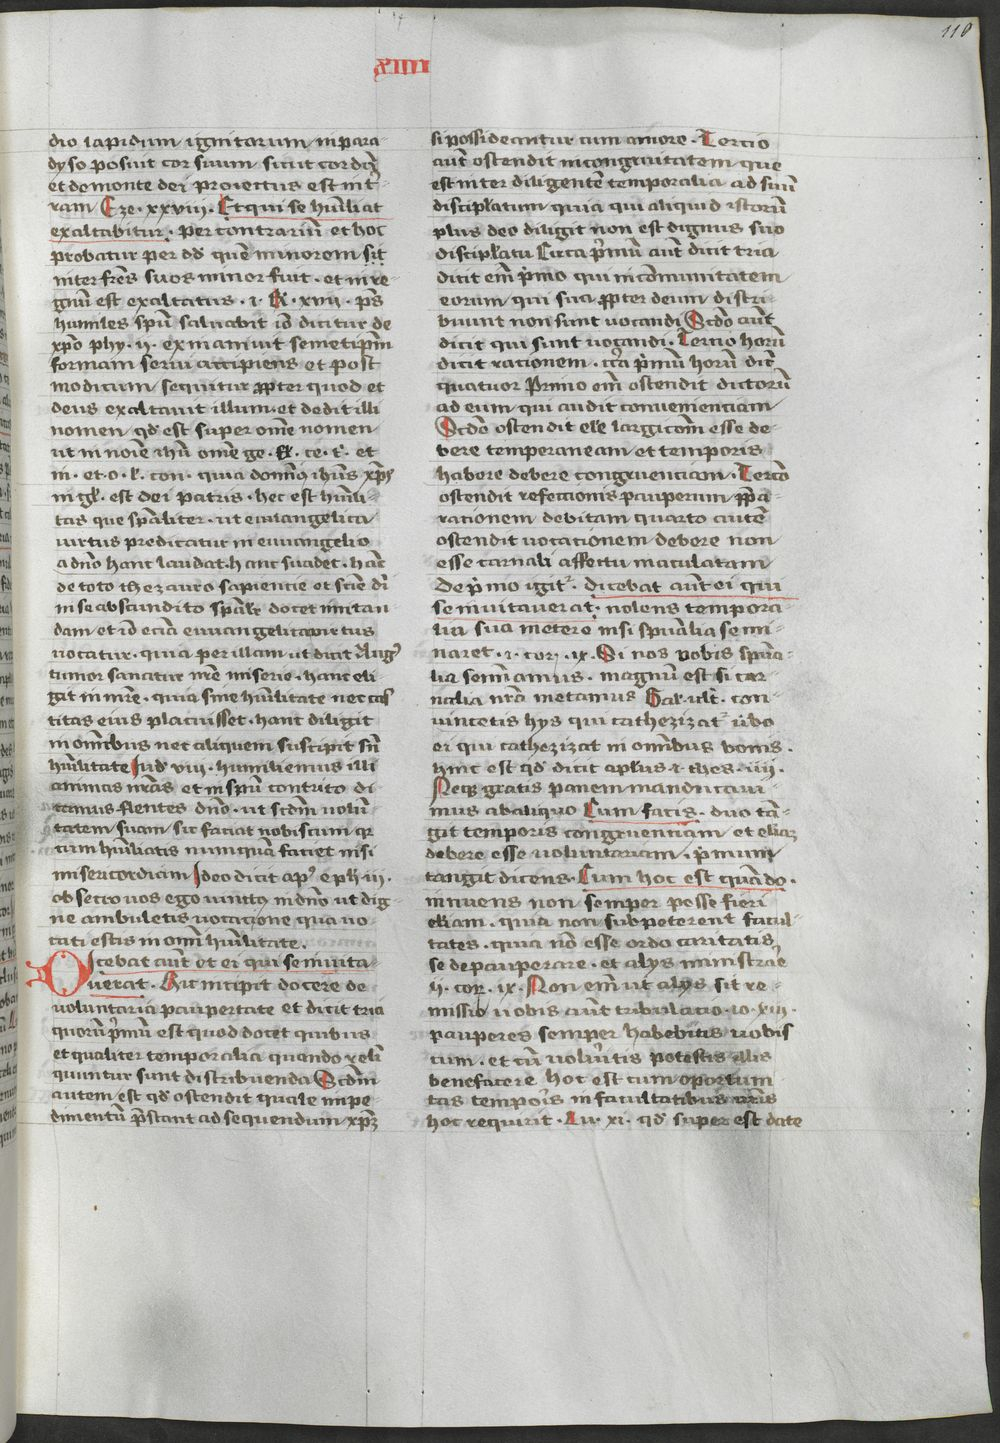 118
xiiii
dio lapidum ignitorum in para-
dyso posuit cor suum sicut cor dei
et de monte dei proiectus est in t'-
ram Eze. xxviii. Et qui se hūiliat
exaltabitur. per contrariū et hoc
probatur per dd quē minorem sit
inter frēs suos minor fuit. et in re-
gnū est exaltatus. i. R. xvii. p̄s
humiles spū saluabit iō dicitur de
xp̄o phy. ii. exinaniuit semetip̄m
formam serui accipiens et post
modicum sequitur p̄pter quod et
deus exaltauit illum. et dedit illi
nomen qd̄ est super om̄e nomen
ut in noīe ihū om̄e ge. fl. ce. t'. et
in. et o. l. con. quia domin9 ihūs xp̄s
in gl'. est dei patris. hec est hūili-
tas que sp̄aliter. ut euuangelica
uirtus predicatur in euuangelio
a dn̄o hanc laudat. hanc suadet. hāc
de toto thezauro sapiencie et sciē dī
in se abscundito sp̄alr̄ docet imitan-
dam et iō eciā euuangelica uirtus
uocatur. quia per illam ut dicit Aug9
tumor sanatur nr̄e miserie. hanc eli-
git in mr̄e. quia sine hūilitate nec cas-
titas eius placuisset. hanc diligit
in om̄ibus nec aliquem suscipit sn̄
hūilitate Jud' viii. humiliemus illi
animas nr̄as et in spū contrito di-
camus flentes dn̄o. ut scd̄m uolū-
tatem suam sic faciat nobiscum qr
cum hūiliatis numquā faciet nisi
misericordiam Ideo dicit ap9 eph iii.
obsecro uos ego uinctus in dn̄o ut dig-
ne ambuletis uocatione qua uo-
cati estis in om̄i hūilitate.
Dicebat aut et ei qui se inuita-
uerat. Hic incipit docere de
uoluntaria paupertate et dicit tria
quorū p'mū est quod docet quibus
et qualiter temporalia quando relī
quuntur sunt distribuenda Scd̄m
autem est qd̄ ostendit quale impe-
dimentū p̄stant ad sequendum xp̄m
si possideantur cum amore. Tercio
aut̄ ostendit incongruitatem que
est inter diligentē temporalia ad suū
discipl̄atum quia qui aliquid istorū
plus deo diligit non est dignus suo
discipl̄atu Circa p'mūm aut̄ dicit tria
dicit em̄ p'mo qui in cōmunitatem
eorum qui sua p̄pter deum distri-
buunt non sunt uocandi Scd̄o aut̄
dicit qui sunt uocandi. Tercio horū
dicit rationem. circa p'mū horū dīc
quatuor Primo em̄ ostendit dictorū
ad eum qui audit conuenienciam
Scd̄o ostendit ele largicōm esse de-
bere temperaneam et temporis
habere debere congruenciam. Tercō
ostendit refectionis pauperum p̄pa-
rationem debitam quarto autē
ostendit uocationem debere non
esse carnali affectu maculatam
De p'mo igit'. dicebat aut̄ ei qui
se inuitauerat. nolens tempora-
lia sua metere nisi sp̄ualia semi-
naret. i. cor. ix. Si nos uobis sp̄ua-
lia seminamus. magnū est si car-
nalia nr̄a metamus Gal. ult'. con-
uincetis hys qui cathezizat' ūbo
ei qui cathezizat in om̄ibus bonis.
hinc est qd̄ dicit ap̄lus i thes. iiii.
Neq; gratis panem manducaui-
mus ab aliquo Cum facis. duo tā-
git temporis congruenciam et eliaz
debere esse uoluntariam. p'mum
tangit dicens. Cum hoc est quādo.
innuens non semper posse fieri
eliam. quia non subpeterent facul-
tates. quia nō esse ordo caritatis
se depauperare. et alys ministrae
ii. cor. ix. Non em̄ ut alys sit re-
missio uobis aut̄ tribulacio. io. xiii.
pauperes semper habebitis uobis
cum. et cū uolūitis potestis illis
benefacere hoc est cum oportuni
tas tempo'is in facultatibus uris
hoc requirit. Lu. xi. qd̄ super est date